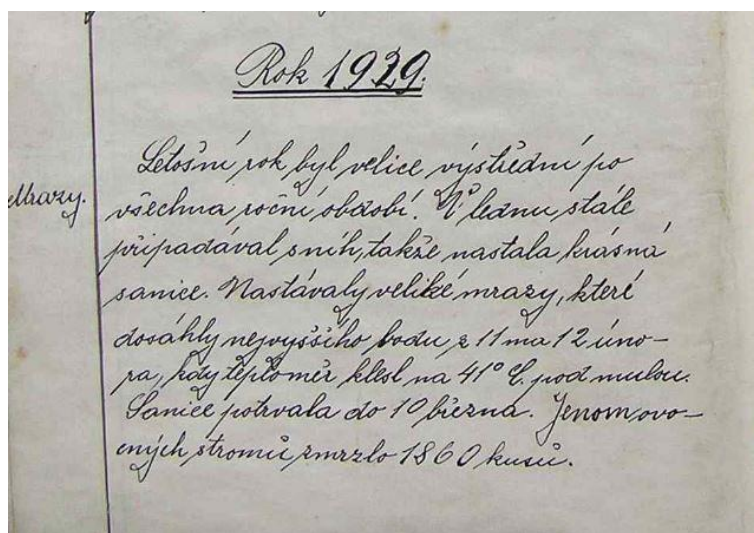 Rok 1929.
Letošní rok byl velice výstřední po
Mrazy.
všechna roční období. V lednu stále
připadával sníh, takže nastala krásná
sanice. Nastávaly veliké mrazy, které
dosáhly nejvyššího bodu z 11 na 12 úno-
ra, kdy teploměr klesl na 41° C. pod nulou.
Sanice potrvala do 10 března. Jenom ovo-
cných stromů zmrzlo 1860 kusů.